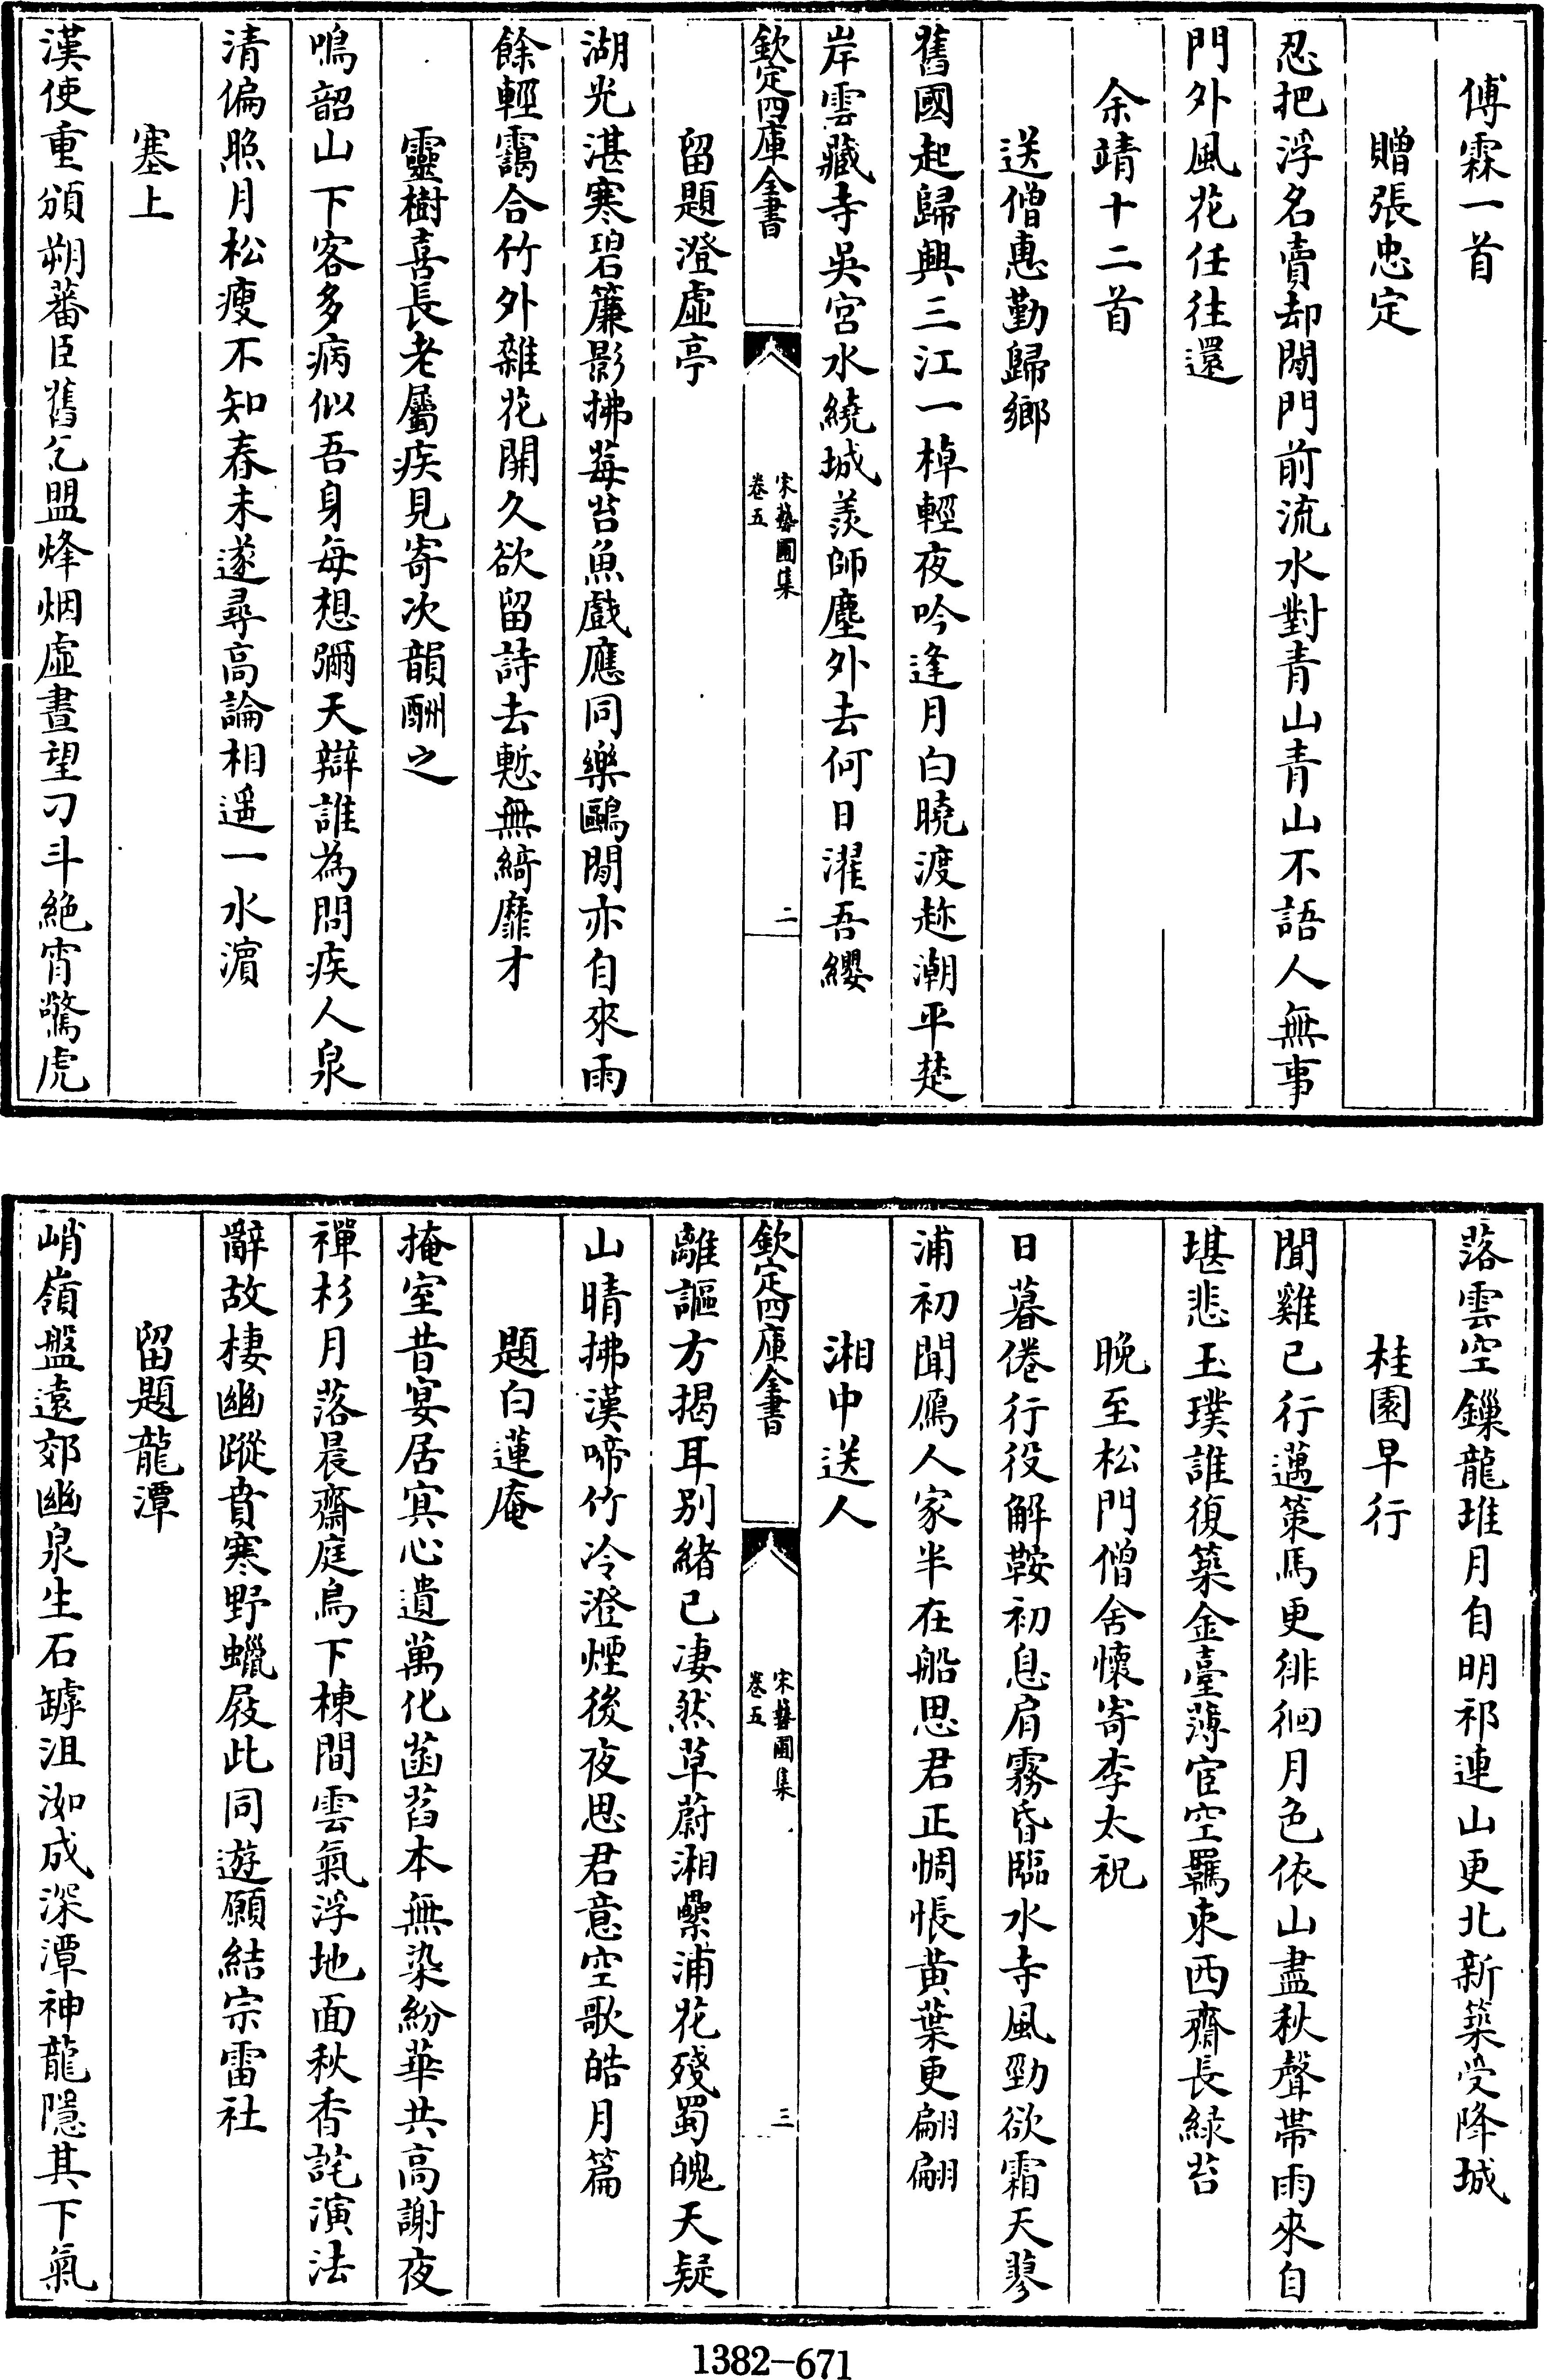 傅霖一首
贈張忠定
忍把浮名賣却閒門前流水對青山青山不語人無事
門外風花任往還
余靖十二首
送僧惠勤歸鄉
舊國起歸興三江一棹輕夜吟逢月白曉渡趂潮平楚
岸雲藏寺吳宮水繞城羨師塵外去何日濯吾纓
欽定四庫全書
宋藝圃集
卷五
二
留題澄虛亭
湖光湛寒碧簾影拂莓苔魚戲應同樂鷗閒亦自來雨
餘輕靄合竹外雜花開久欲留詩去慙無綺靡才
靈樹喜長老屬疾見寄次韻酬之
鳴韶山下客多病似吾身每想彌天辯誰為問疾人泉
清偏照月松瘦不知春未遂尋高論相遥一水濵
塞上
漢使重頒朔蕃臣舊乞盟烽烟虛晝望刁斗絶宵驚虎
落雲空鏁龍堆月自明祁連山更北新築受降城
桂園早行
聞雞已行邁策馬更徘徊月色依山盡秋聲帶雨來自
堪悲玉璞誰復築金臺薄宦空羈束西齋長緑苔
晚至松門僧舍懷寄李太祝
日暮倦行役解鞍初息肩霧昏臨水寺風勁欲霜天蓼
浦初聞鴈人家半在船思君正惆悵黄葉更翩翩
湘中送人
欽定四庫全書
宋藝圃集
卷五
三
離謳方揭耳别緒已凄然草蔚湘纍浦花殘蜀魄天疑
山晴拂漢啼竹冷澄煙後夜思君意空歌皓月篇
題白蓮庵
掩室昔宴居寘心遺萬化菡萏本無染紛華共高謝夜
禪杉月落晨齋庭鳥下棟間雲氣浮地面秋香詫演法
辭故棲幽蹤賁寒野蠟屐此同遊願結宗雷社
留題龍潭
峭嶺盤遠郊幽泉生石罅沮洳成深潭神龍隱其下氣
1382-671